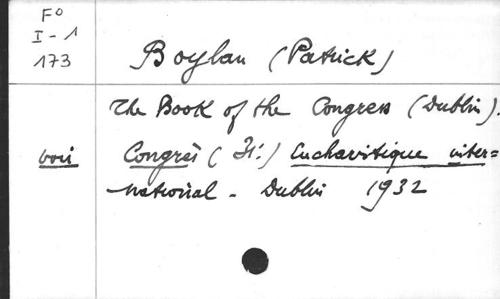 F°
I - 1
173
Boylan (Patrick)
The Book of the Congress (Dublin).
voir Congrès ( ) Eucharistique inter=
national - Dublin 1932